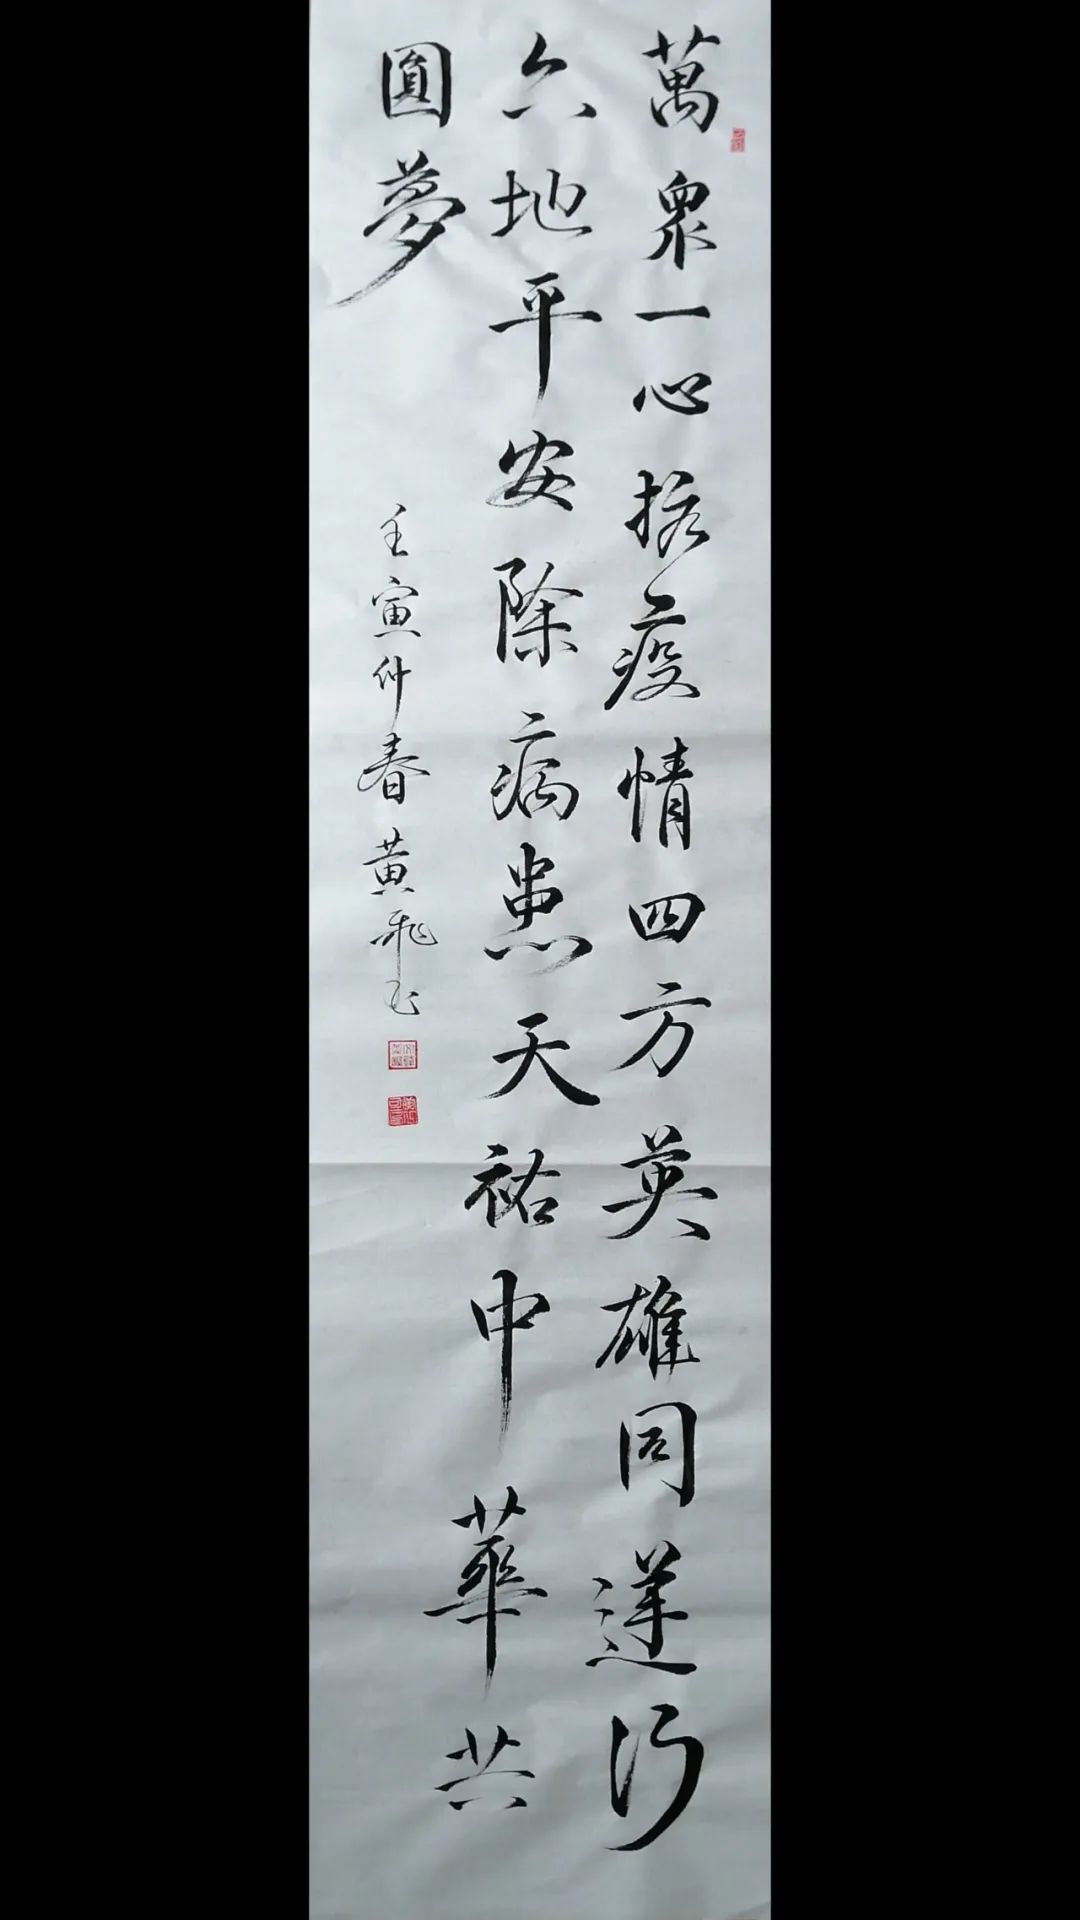 萬衆一心疫情四方英雄同逆行
六地平安除病患天祐中華共
圓夢
壬寅仲春黄飛